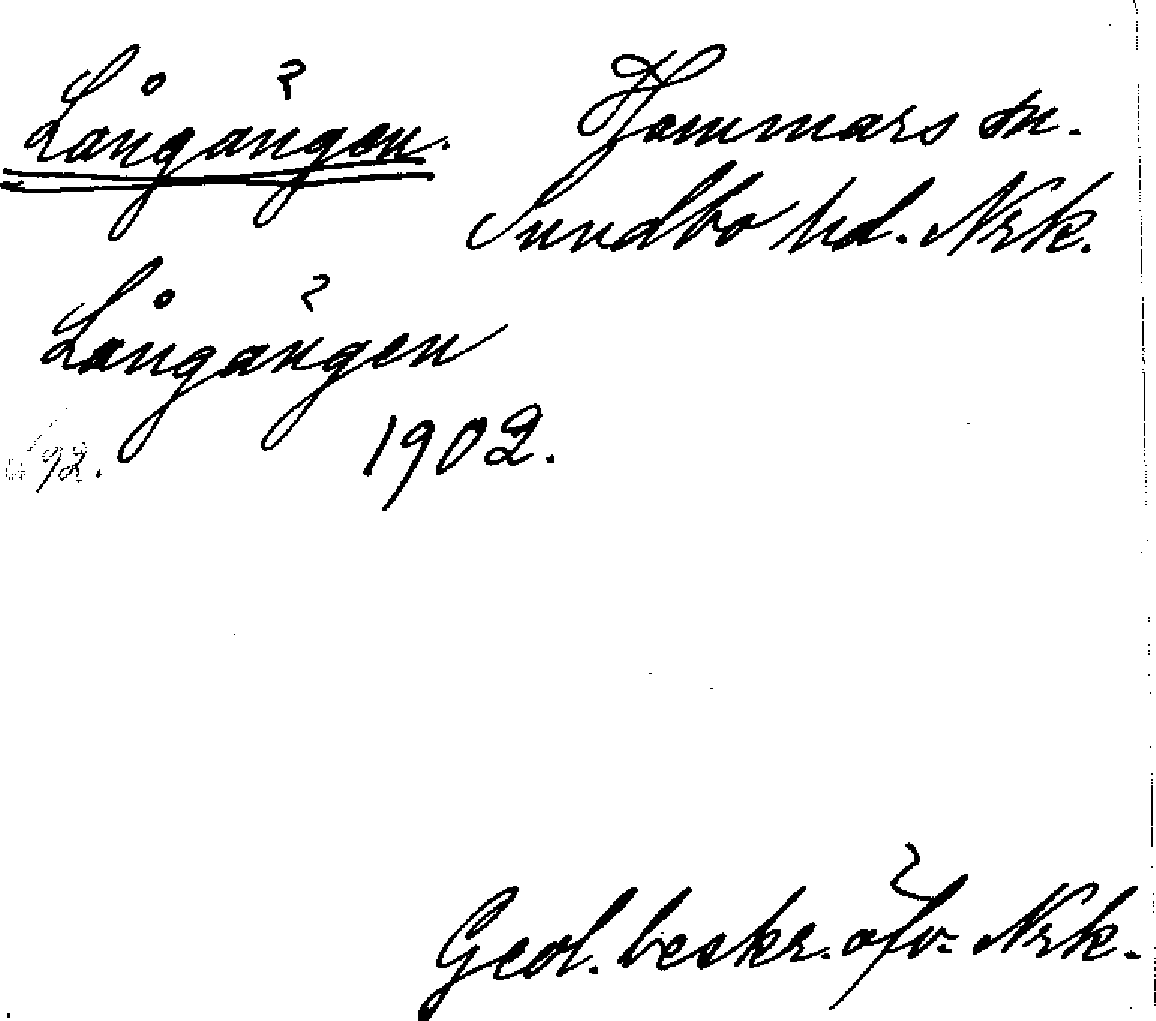 Långängen.
Hammars sn.
Sundbo hd. Nrk.
Långängen
1902.
92.
Geol. beskr. öfv. Nrk.